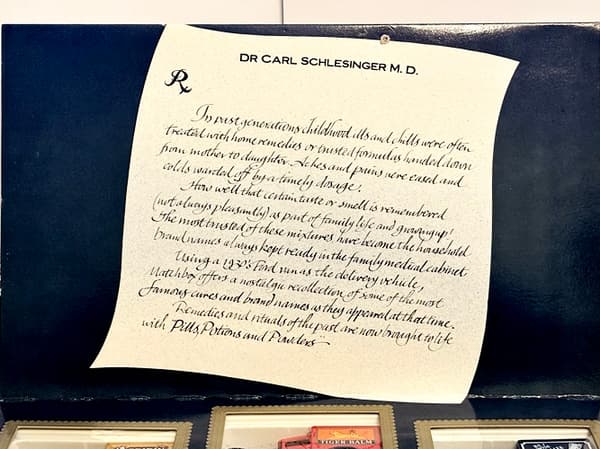 DR CARL SCHLESINGER M. D.
Rx
In past generations childhood ills and chills were often
treated with home remedies or trusted formulas handed down
from mother to daughter. Aches and pains were eased and
colds warded off by a timely dosage!
How well that certain taste or smell is remembered
(not always pleasantly) as part of family life and growing up!
The most trusted of these mixtures have become the household
brand names always kept ready in the family medical cabinet
Using a 1930's Ford van as the delivery vehicle,
Matchbox offers a nostalgic recollection of some of the most
famous cures and brand names as they appeared at that time.
Remedies and rituals of the past are now brought to life
with Pills, Potions and Powders...
TIGER BALM